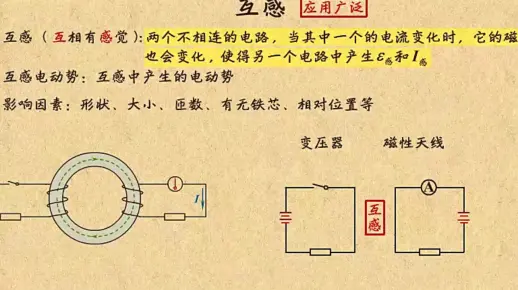 互感 应用广泛
互感（互相有感觉）：两个不相连的电路，当其中一个的电流变化时，它的磁
也会变化，使得另一个电路中产生ε感和I感
互感电动势：互感中产生的电动势
影响因素：形状、大小、匝数、有无铁芯、相对位置等
变压器 磁性天线
I
A
互感